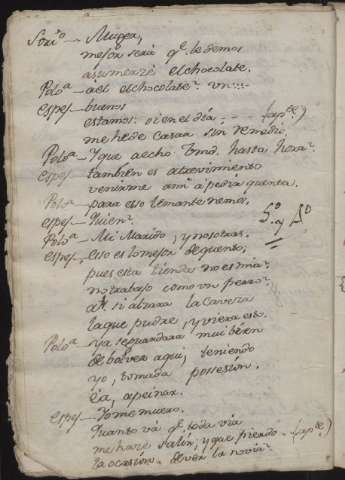 Soriº — Muger,
mejor será q.e le demos
asumerzé el chocolate.
Polª — àèl el chocolate? Vn----
espej — bamos
estamos: si en el dia — (ap.te)
me hede Casar sin remedio.
Polª — Y que a echo Vmd. hasta hora?
espej — también es atrevimiento
venirme ami a pedir quenta.
Polª — para eso le mantenemos.
espej — Quien?
Polª — Mi Marido, y nosotras.
espej — eso es lo mejor del quento;
pues esta tienda no es mia?
no trabajo como un perro?
ah! si alzara la Caveza
la que pudre, y viera esto.
Polª — ya se guardara mui bien
de bolver aqui, teniendo
yo, tomada possesion.
Ea, a peinar.
espej — Yo me muero.
Quanto vá q.e toda via
me haze salir; y que pierdo — (ap.te)
la ocasion de ver la novia?